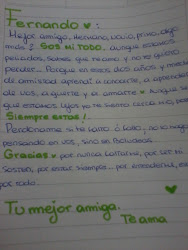 Fernando ♥:
Mejor amigo, hermano, novio, primo, digo
más? SOS MI TODO. aunque estemos
peleados, sabes que te amo y no te quiero
perder... Porque en esos dos años y meses
de amistad aprendí a conocerte, a aprender
de vos, a quererte y a amarte ♥ Aunque
que estamos lejos yo te siento cerca mío,
Siempre estas!.
Perdoname si te fallo ó fallé, no lo hago
pensando en vos, sino en
Gracias por nunca fallarme, por ser mi
Sosten, por estar siempre, por entenderme,
por todo.
♥
Tu mejor amiga.
Te ama